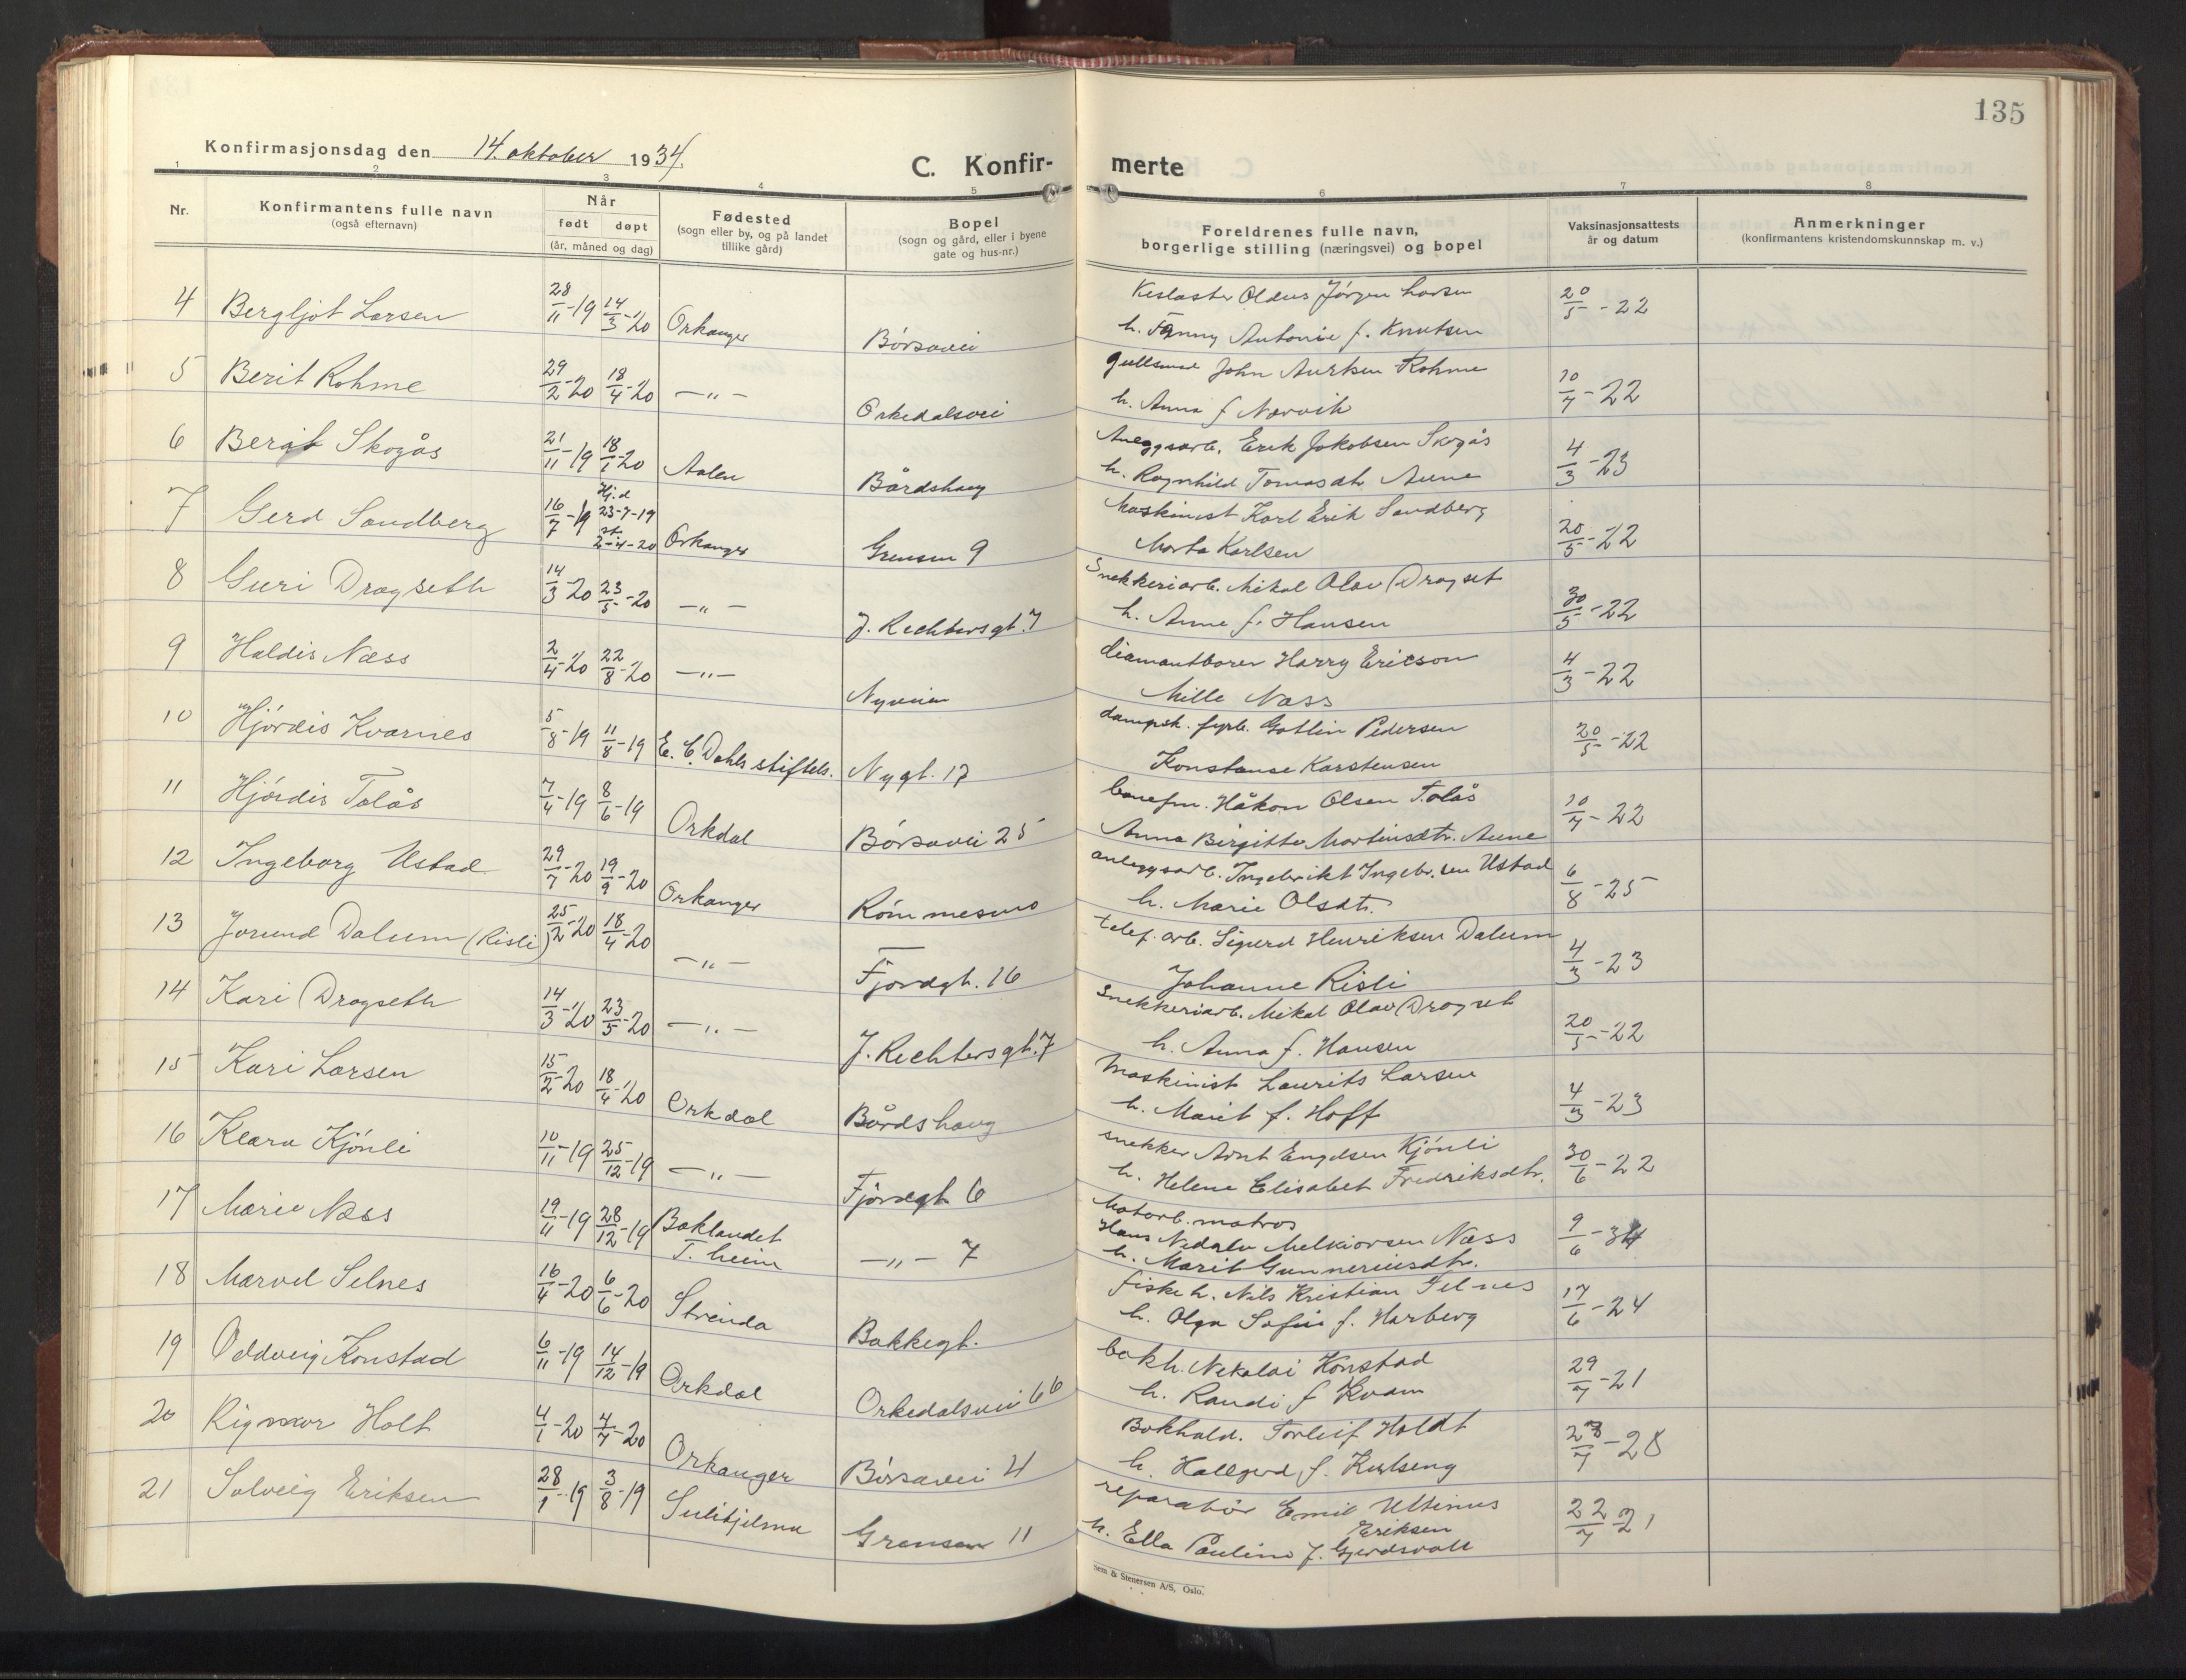 135
Konfirmasjonsdag den 14. oktober 1934.
C. Konfir-
merte
1 2 3 4 5 6 7 8
Nr. Konfirmantens fulle navn (også efternavn) Når født døpt (år, måned og dag) Fødested (sogn eller by, og på landet tillike gård) Bopel (sogn og gård, eller i byene gate og hus-nr.) Foreldrenes fulle navn, borgerlige stilling (næringsvei) og bopel Vaksinasjonsattests år og datum Anmerkninger (konfirmantens kristendomskunnskap m. v.)
4 Bergljot Larsen 28/11-19 14/3-20 Orkanger Børsavei Oldus Jørgen Larsen
h. Fanny Antonie f. Knutsen 20/5-22
5 Berit Rohme 29/2-20 18/4-20 -"- Orkedalsvei gullsmed John Rohme
h. Anna f Narvik 10/7-22
6 Berit Skogås 21/11-19 18/1-20 Aalen Bårdshaug Anleggsarb. Erik Jakobsen Skogås
h. Ragnhild Tomasdt. Aune 4/3-23
7 Gerd Sandberg 16/7-19 Hj.d 23-7-19 st. 2-4-20 Orkanger Grensen 9 Maskinist Karl Erik Sandberg
Marta Karlsen 20/5-22
8 Guri Dragseth 14/3-20 23/5-20 -"- J. Richtersgt. 7 Snekkeriarb. Mikal Olav Dragset
h. Anne f. Hansen 30/5-22
9 Haldis Næss 2/4-20 22/8-20 -"- Nyveien diamantborer Harry Ericson
Mille Næss 4/3-22
10 Hjørdis Kvarnes 5/8-19 11/8-19 E. C. Dahls stiftels. Nygt. 17 dampsk. fyrb. Gotlin Pedersen
Konstanse Karstensen 20/5-22
11 Hjørdis Tolås 7/4-19 8/6-19 Orkdal Børsavei 25 banefm. Håkon Olsen Tolås
Anna Birgitte Martinsdtr. Aune 10/7-22
12 Ingeborg Ustad 29/7-20 19/9-20 Orkanger Rømmesmo anleggsarb. Ingebrikt Ingebr.sen Ustad
h. Marie Olsdt. 6/8-25
13 Jorund Dalum (Risli) 25/2-20 18/4-20 -"- Fjordgt. 16 telef. arb. Sigurd Henriksen Dalum
Johanne Risli 4/3-23
14 Kari Dragseth 14/3-20 23/5-20 -"- J. Richtersgt. 7 Snekkeriarb. Mikal Olav Dragset
h. Anna f. Hansen 20/5-22
15 Kari Larsen 15/2-20 18/4-20 Orkdal Bårdshaug Maskinist Laurits Larsen
h. Marit f. Hoff 4/3-23
16 Klara Kjønli 10/11-19 25/12-19 -"- Fjordgt 6 snekker Arnt Engelsen Kjønli
h. Helene Elisabet Fredriksdtr. 30/6-22
17 Marie Næss 19/11-19 28/12-19 Baklandet T. heim -"- 7 Motorb. matros
Hans Nidalv Melkiorsen Næss
h. Marit Gunneriusdtr. 9/6-34
18 Marvel Selnes 16/4-20 6/6-20 Strinda Bakkegt. fiskeh. Nils Kristian Selnes
h. Olga Sofie f. Harberg 17/6-24
19 Oddveig Konstad 6/11-19 14/12-19 Orkdal Orkedalsvei 66 bokh. Nikolai Konstad
h. Randi f Kvam 29/7-21
20 Rigmor Holt 4/1-20 4/7-20 Orkanger Børsavei 4 Bokhald. Torleif Holdt
h. Hallgerd f. 23/7-28
21 Solveig Eriksen 28/1-19 3/8-19 Sulitjelma Grensen 11 reparatør Emil Ultimus Eriksen
h. Ella Pauline f. Gjerdsvoll 22/7 21
Sem & Stenersen A/S, Oslo.